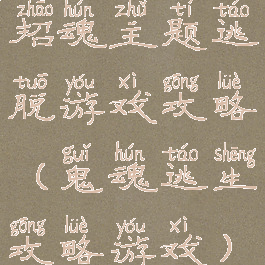 zhāo hún zhǔ tí táo
招魂主题逃
tuō yóu xì gōng lüè
脱游戏攻略
guǐ hún táo shēng
（鬼魂逃生
gōng lüè yóu xì
攻略游戏）